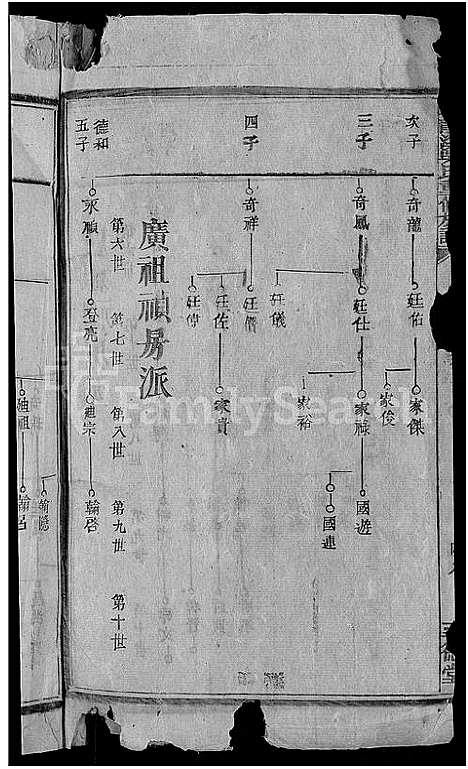 次子
奇龍
廷佑
家傑
家俊
三子
奇鳳
廷仕
家祿
國遊
國連
家裕
廷儀
四子
奇祥
廷佐
家貴
廷傳
廣祖禎房派
第六世
第七世
第八世
第九世
第十世
德和
五子
永禎
登亮
建宗
翰啓
FamilySearch